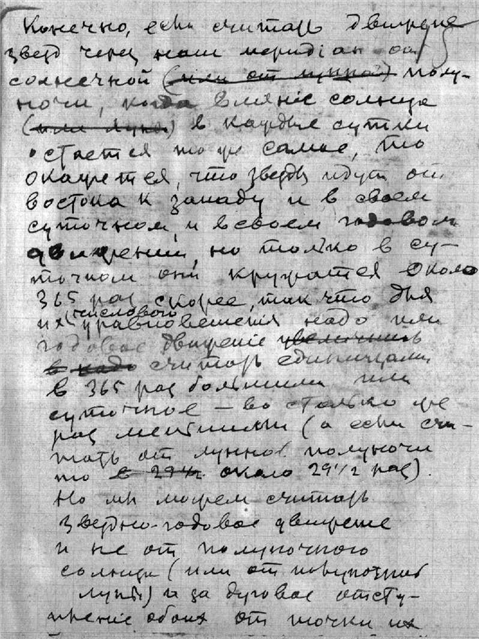 Конечно, если считать движение
звезд через наш меридиан от
солнечной (или от лунной) полу-
ночи, когда влияніе солнца
(или луны) в каждые сутки
остается то же самое, то
окажется, что звезды идут от
востока к западу и в своем
суточном, и в своем годовом
движении, но только в су-
точном они кружатся около
365 раз скорее, так что для
их числового уравновешения надо или
годовое движение увеличить
в надо считать единицами
в 365 раз большими или
суточное — во столько же
раз меньшими (а если счи-
тать от лунной полуночи
то в 29½ около 29½ раз).
Но мы можем считать
звездно-годовое движение
и не от полуночного
солнца (или от полуночной
луны) и за дуговое отсту-
пление обоих от точки их